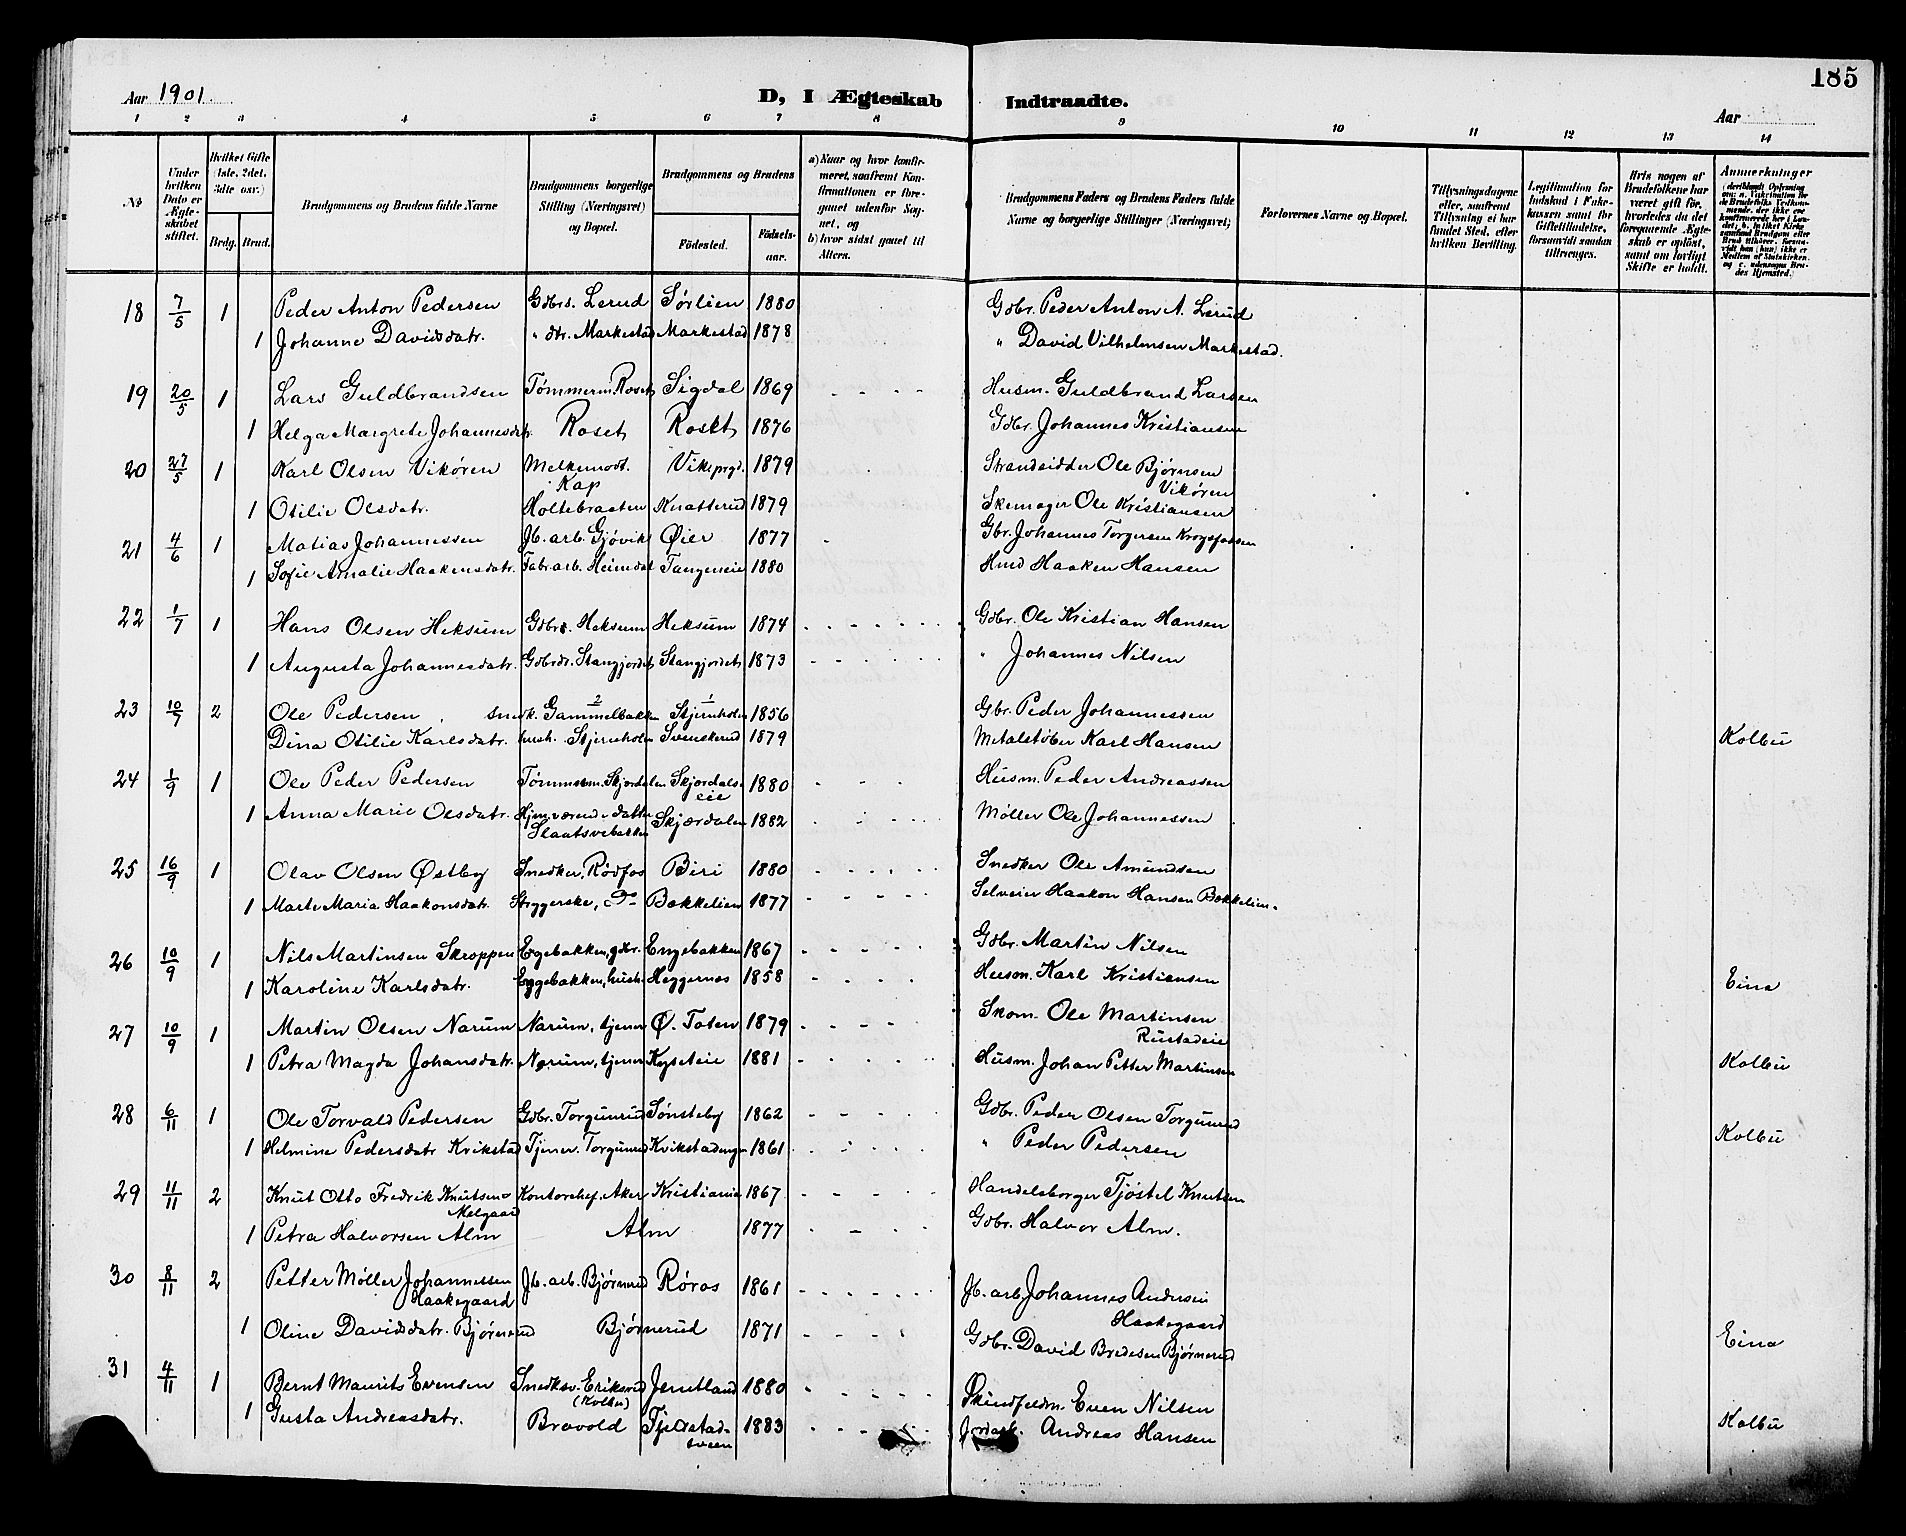 185
Aar 1901.
D, I Ægteskab Indtraadte.
Aar
1 2 3 4 5 6 7 8 9 10 11 12 13 14
No
Under hvilken Dato er Ægteskabet stiftet.
Hvilket Gifte (1ste, 2det, 3die osv.)
Brdg. Brud.
Brudgommens og Brudens fulde Navne
Brudgommens borgerlige Stilling (Næringsvei) og Bopæl.
Brudgommens og Brudens
Fødested. Fødselsaar.
a) Naar og hvor konfirmeret, saafremt Konfirmationen er foregaaet udenfor Sognet, og
b) hvor sidst gaaet til Alters.
Brudgommens Faders og Brudens Faders fulde Navne og borgerlige Stillinger (Næringsvei)
Forlovernes Navne og Bopæl.
Tillysningsdagene eller, saafremt Tillysning ei har fundet Sted, efter hvilken Bevilling.
Legitimation for Indskud i Enkekassen samt for Giftetilladelse, forsaavidt saadan tiltrænges.
Hvis nogen af Brudefolkene har været gift før, hvorledes da det foregaaende Ægteskab er opløst, samt om lovligt Skifte er holdt.
Anmerkninger
18 7/5 1 Peder Anton Pedersen Gdbrs. Lerud Sørlien 1880 Gdbr. Peder Anton A. Lerud
1 Johanne Davidsdatr. " dtr. Markestad Markestad 1878 " David Vilhelmsen Markestad.
19 20/5 1 Lars Guldbrandsen Tømmerm. Roset Sigdal 1869 Husm. Guldbrand Larsen
1 Helga Margrete Johannesdatr. Roset Roset 1876 Gdbr. Johannes Kristiansen
20 27/5 1 Karl Olsen Vikøren Melkemodt. Kap Vikeprgd. 1879 Strandsidder Ole Bjørnsen Vikøren
1 Otilie Olsdatr. Holtebraaten Knatterud 1879 Skomager Ole Kristiansen
21 4/6 1 Matias Johannessen Jb. arb. Gjøvik Øier 1877 Gbr. Johannes Torgersen Krogsfossen
1 Sofie Amalie Haakensdatr. Fabr. arb. Heimdal Tangeneie 1880 Hmd Haaken Hansen
22 1/7 1 Hans Olsen Heksum Gdbrs. Heksum Heksum 1874 Gdbr. Ole Kristian Hansen
1 Augusta Johannesdatr. Gdbrdr. Stangjordet Stangjordet 1873 " Johannes Nilsen
23 10/7 2 Ole Pedersen Snedk. Gammelbakken Stjernholen 1856 Gbr. Peder Johannessen
Dina Otilie Karlsdatr. hush. Stjernholen Svenskerud 1879 Metalstøber Karl Hansen Kolbu
24 1/9 1 Ole Peder Pedersen Tømmerm. Skjerdalen Skjerdalseie 1880 Husm. Peder Andreassen
1 Anna Marie Olsdatr. Hjemværende datter Slaatsvebakken Skjærdalen 1882 Møller Ole Johannessen
25 16/9 1 Olav Olsen Østby Snedker, Rødfos Biri 1880 Snedker Ole Amundsen
1 Marte Maria Haakonsdatr. Strygerske, do Bakkelien 1877 Selveier Haakon Hansen Bakkelien.
26 10/9 1 Nils Martinsen Skroppen Eggebakken, gdbr. Engebakken 1867 Gdbr. Martin Nilsen
1 Karoline Karlsdatr. Eggebakken, hush. Heggernæs 1858 Husm. Karl Kristiansen Eina
27 10/9 1 Martin Olsen Narum Narum, tjener Ø. Toten 1879 Skom. Ole Martinsen Rustadeie
1 Petra Magda Johansdatr. Narum, tjener Kyseteie 1881 Husm. Johan Petter Martinsen Kolbu
28 6/11 1 Ole Torvald Pedersen Gdbr. Torgunrud Sønsteby 1862 Gdbr. Peder Olsen Torgunrud
1 Helmine Pedersdatr Kvikstad Tjener. Torgunrud Kvikstadenge 1861 " Peder Pedersen Kolbu
29 11/11 2 Knut Otto Fredrik Knutsen Melgaard Kontorchef. Aker Kristiania 1867 Handelsborger Tjøstel Knutsen
1 Petra Halvorsen Alm Alm 1877 Gdbr. Halvor Alm.
30 8/11 2 Petter Møller Johannessen Haakegaard Jb. arb. Bjørnerud Røros 1861 Jb. arb. Johannes Andersen Haakegaard
1 Oline Davidsdatr. Bjørnerud Bjørnerud 1871 Gdbr. David Bredesen Bjørnerud Eina
31 4/11 1 Bernt Maurits Evensen Snedksv. Eriksrud (Kolbu) Jemtland 1880 Skindfeldm. Even Nilsen
1 Gusta Andreasdatr. Bravold Fjeldstadsveen 1883 Jordarb. Andreas Hansen Kolbu